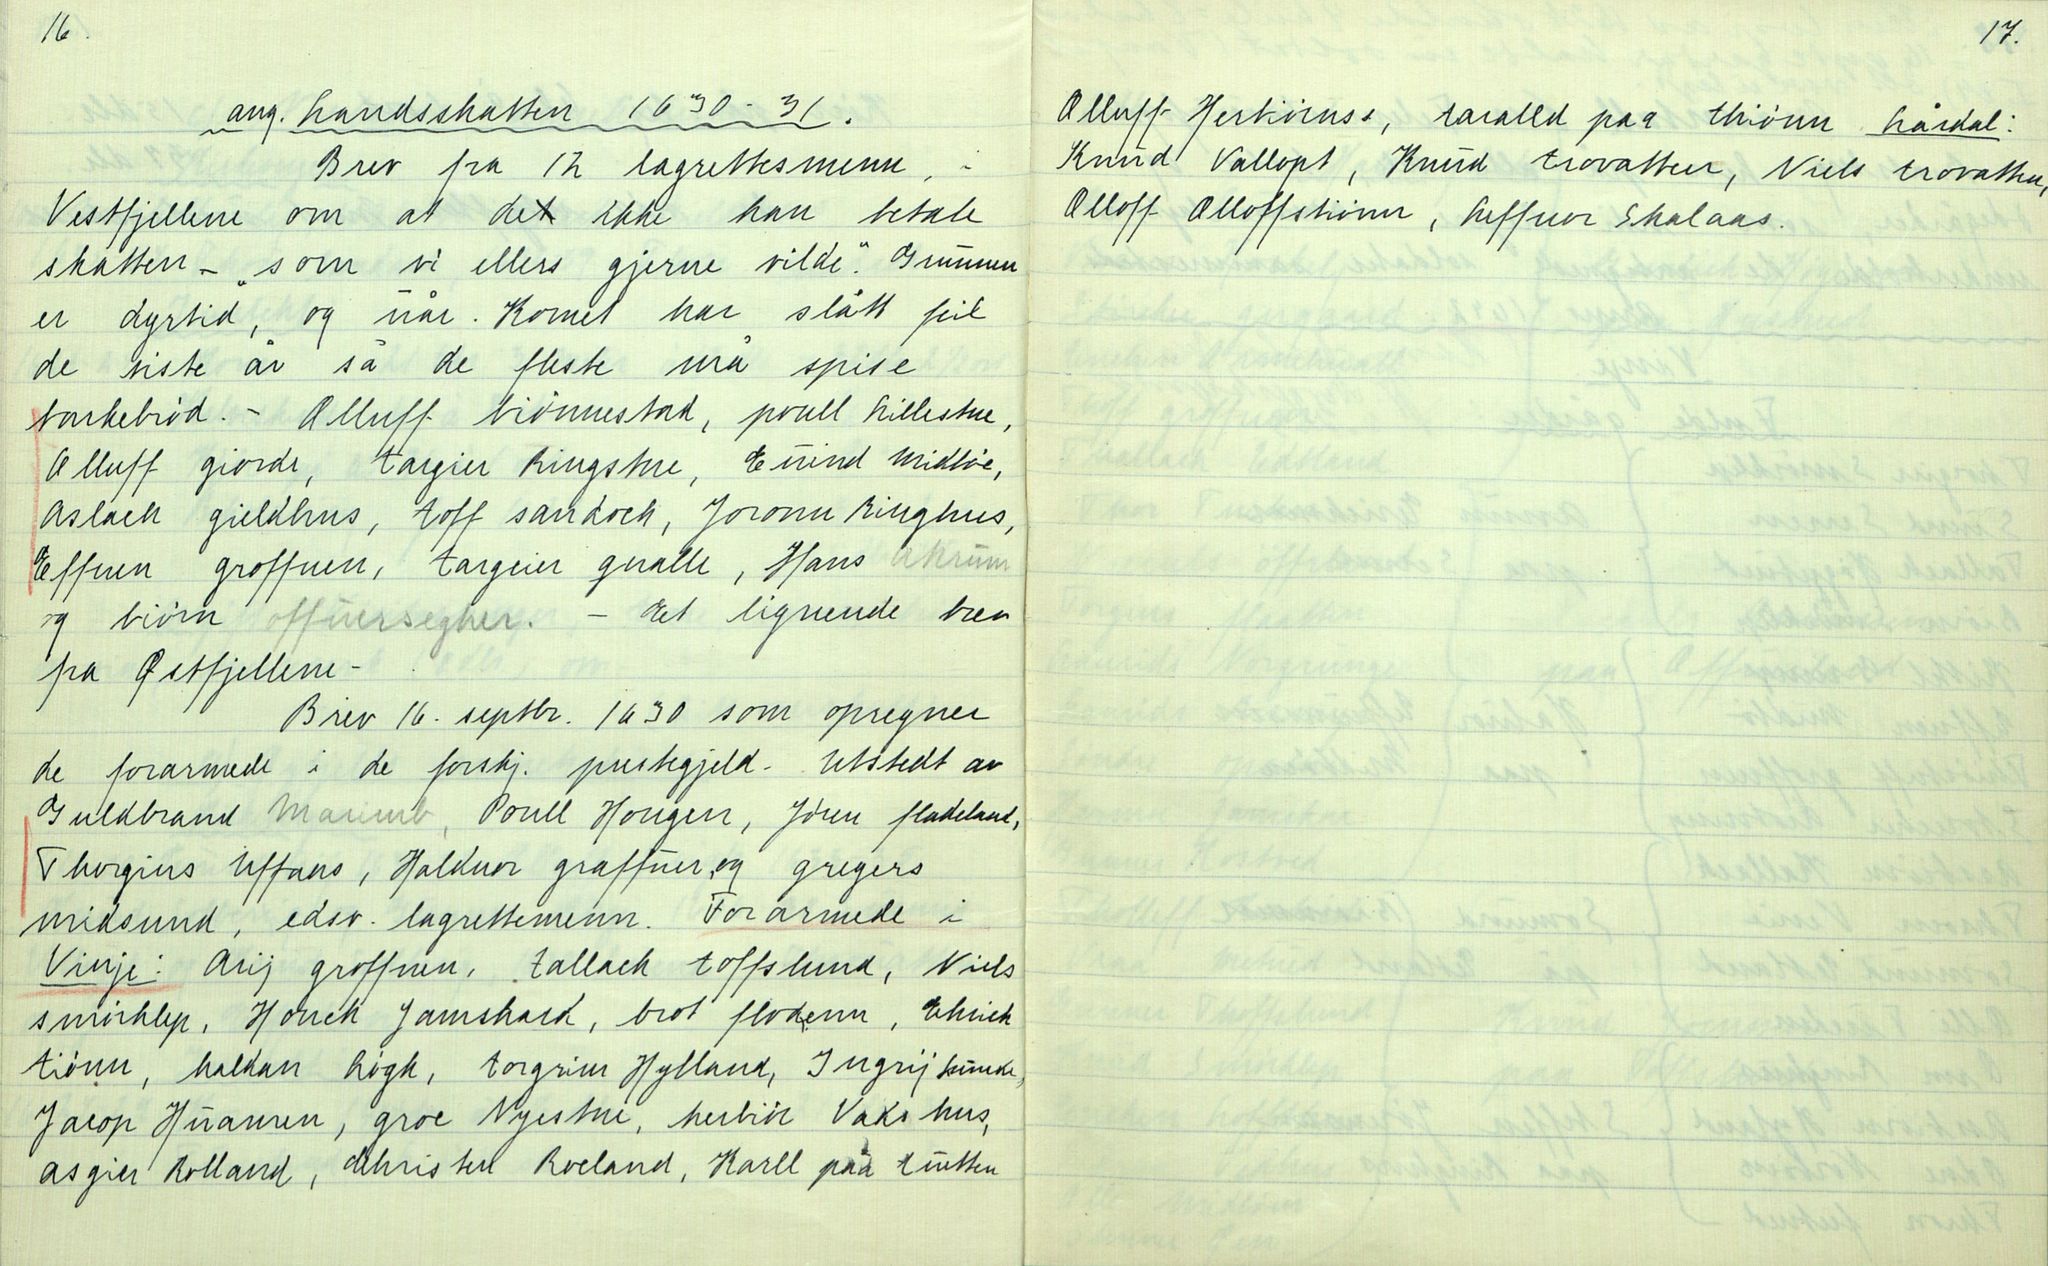 16.
ang. Landsskatten 1630-31.
Brev fra 12 lagrettesmenn, i
Vestfjellene om at det ikke kan betale
skatten - "som vi ellers gjerne vilde". Grunnen
er dyrtid, og uår. Kornet har slått feil
de siste år så de fleste må spise
barkebrød. - Olluff biönnestad, poull Lillestue,
Olluff giorde, targier Ringstue, Euind Midböe,
Aslach gieldhus, toff sandock, Joronn Ringhus,
Effuen groffuen, targeier qualle, Hans Akrum
og biörn offuersegher. - Et lignende brev
fra Østfjellene -
Brev 16. septbr. 1630 som opregner
de forarmede i de forskj. prestegjeld - Utstedt av
Guldbrand Poull Hougen, Jören fladeland,
Thorgius Uffaas, Halduor graffuer, og gregers
midsund, edsv. lagrettemenn. Forarmede i
Vinje: Arij groffuen, tallach toffslund, Niels
smörklep, Houck Jamsgard, brot flodenn, Ehrich
tiönn, haldan Högh, torgrim Hylland, Ingrij
Jacop Huamen, groe Nyestue, herbiör Vaashus,
asgier Rolland, Christen Roeland, Karll paa tuetten
17.
Olluff Herbiörnss, taralld paa thiönn Lårdal:
Knud Vallopt, Knud trovatten, Niels trovatten,
Olloff Olloffstiönn, Leffuor Skalaas.